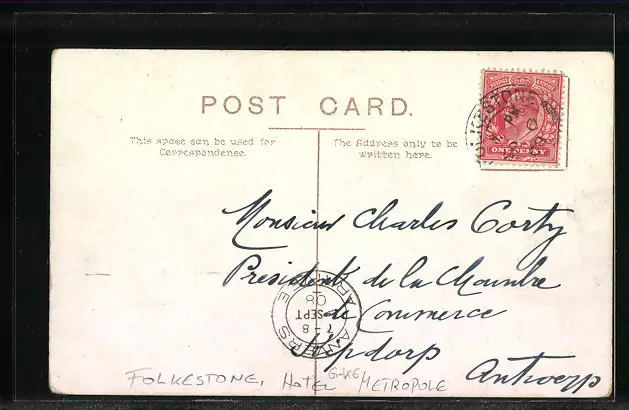 POST CARD.
This space can be used for
Correspondence.
The Address only to be
written here.
FOLKESTONE
PM
ONE PENNY
Monsieur Charles Corty
Président de la Chambre
de Commerce
Kipdorp
Antwerp
ANVERS
7-8
SEPT
08
ARRIVEE
FOLKESTONE, Hotel METROPOLE